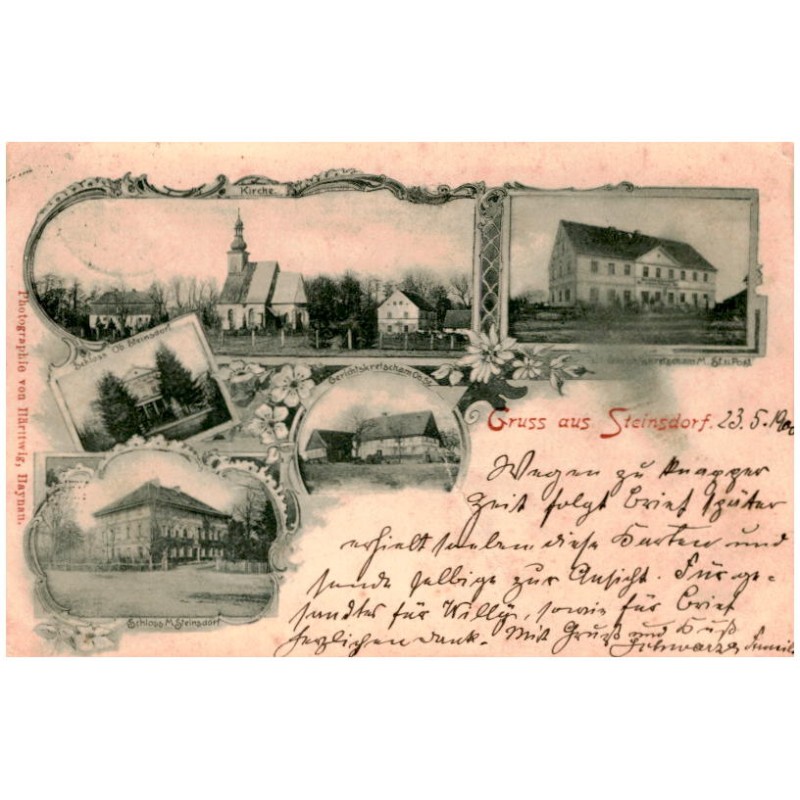 Kirche.
Schloss Ob. Steinsdorf.
Gerichtskretscham Ob. St.
kretscham M. St. u. Post.
Schloss M. Steinsdorf
Photographie von Häritwig, Haynau.
Gruss aus Steinsdorf. 23.5.1900
Wegen zu knapper
Zeit folgt Brief später
erhielt soeben diese Karten und
sende selbige zur Ansicht. Für ge-
sandtes für Willy, sowie für Brief
herzlichen dank. Mit Gruß und Kuß
Schwarze